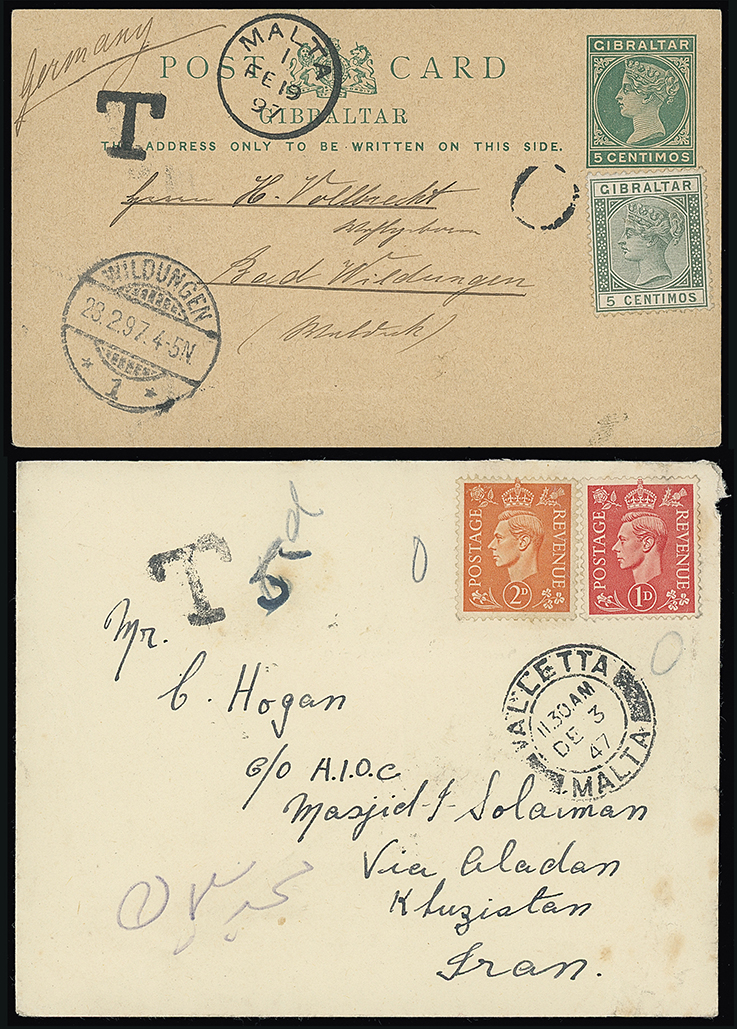 Germany
POST CARD
GIBRALTAR
THE ADDRESS ONLY TO BE WRITTEN ON THIS SIDE.
MALTA
FE 19
97
T
GIBRALTAR
5 CENTIMOS
GIBRALTAR
5 CENTIMOS
Herrn H. Vollbrecht
Bad Wildungen
(Waldeck)
WILDUNGEN
23.2.97.4-5N.
* 1 *
T 5d
0
POSTAGE REVENUE
2D
POSTAGE REVENUE
1D
0
Mr.
C. Hogan
c/o A.I.O.C
Masjid-I-Solaiman
Via Aladan
Khuzistan
Iran.
VALLETTA
11.30 AM
DE 3
47
MALTA